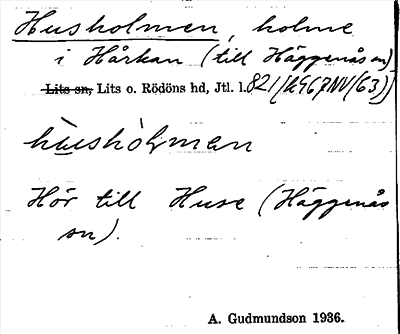 Husholmen, holme
i Hårkan (till Häggenås sn)
Lits sn, Lits o. Rödöns hd, Jtl. l. 821 [2967NV(63)]
hùshólmen
Hör till Huse (Häggenås
sn).
A. Gudmundson 1936.